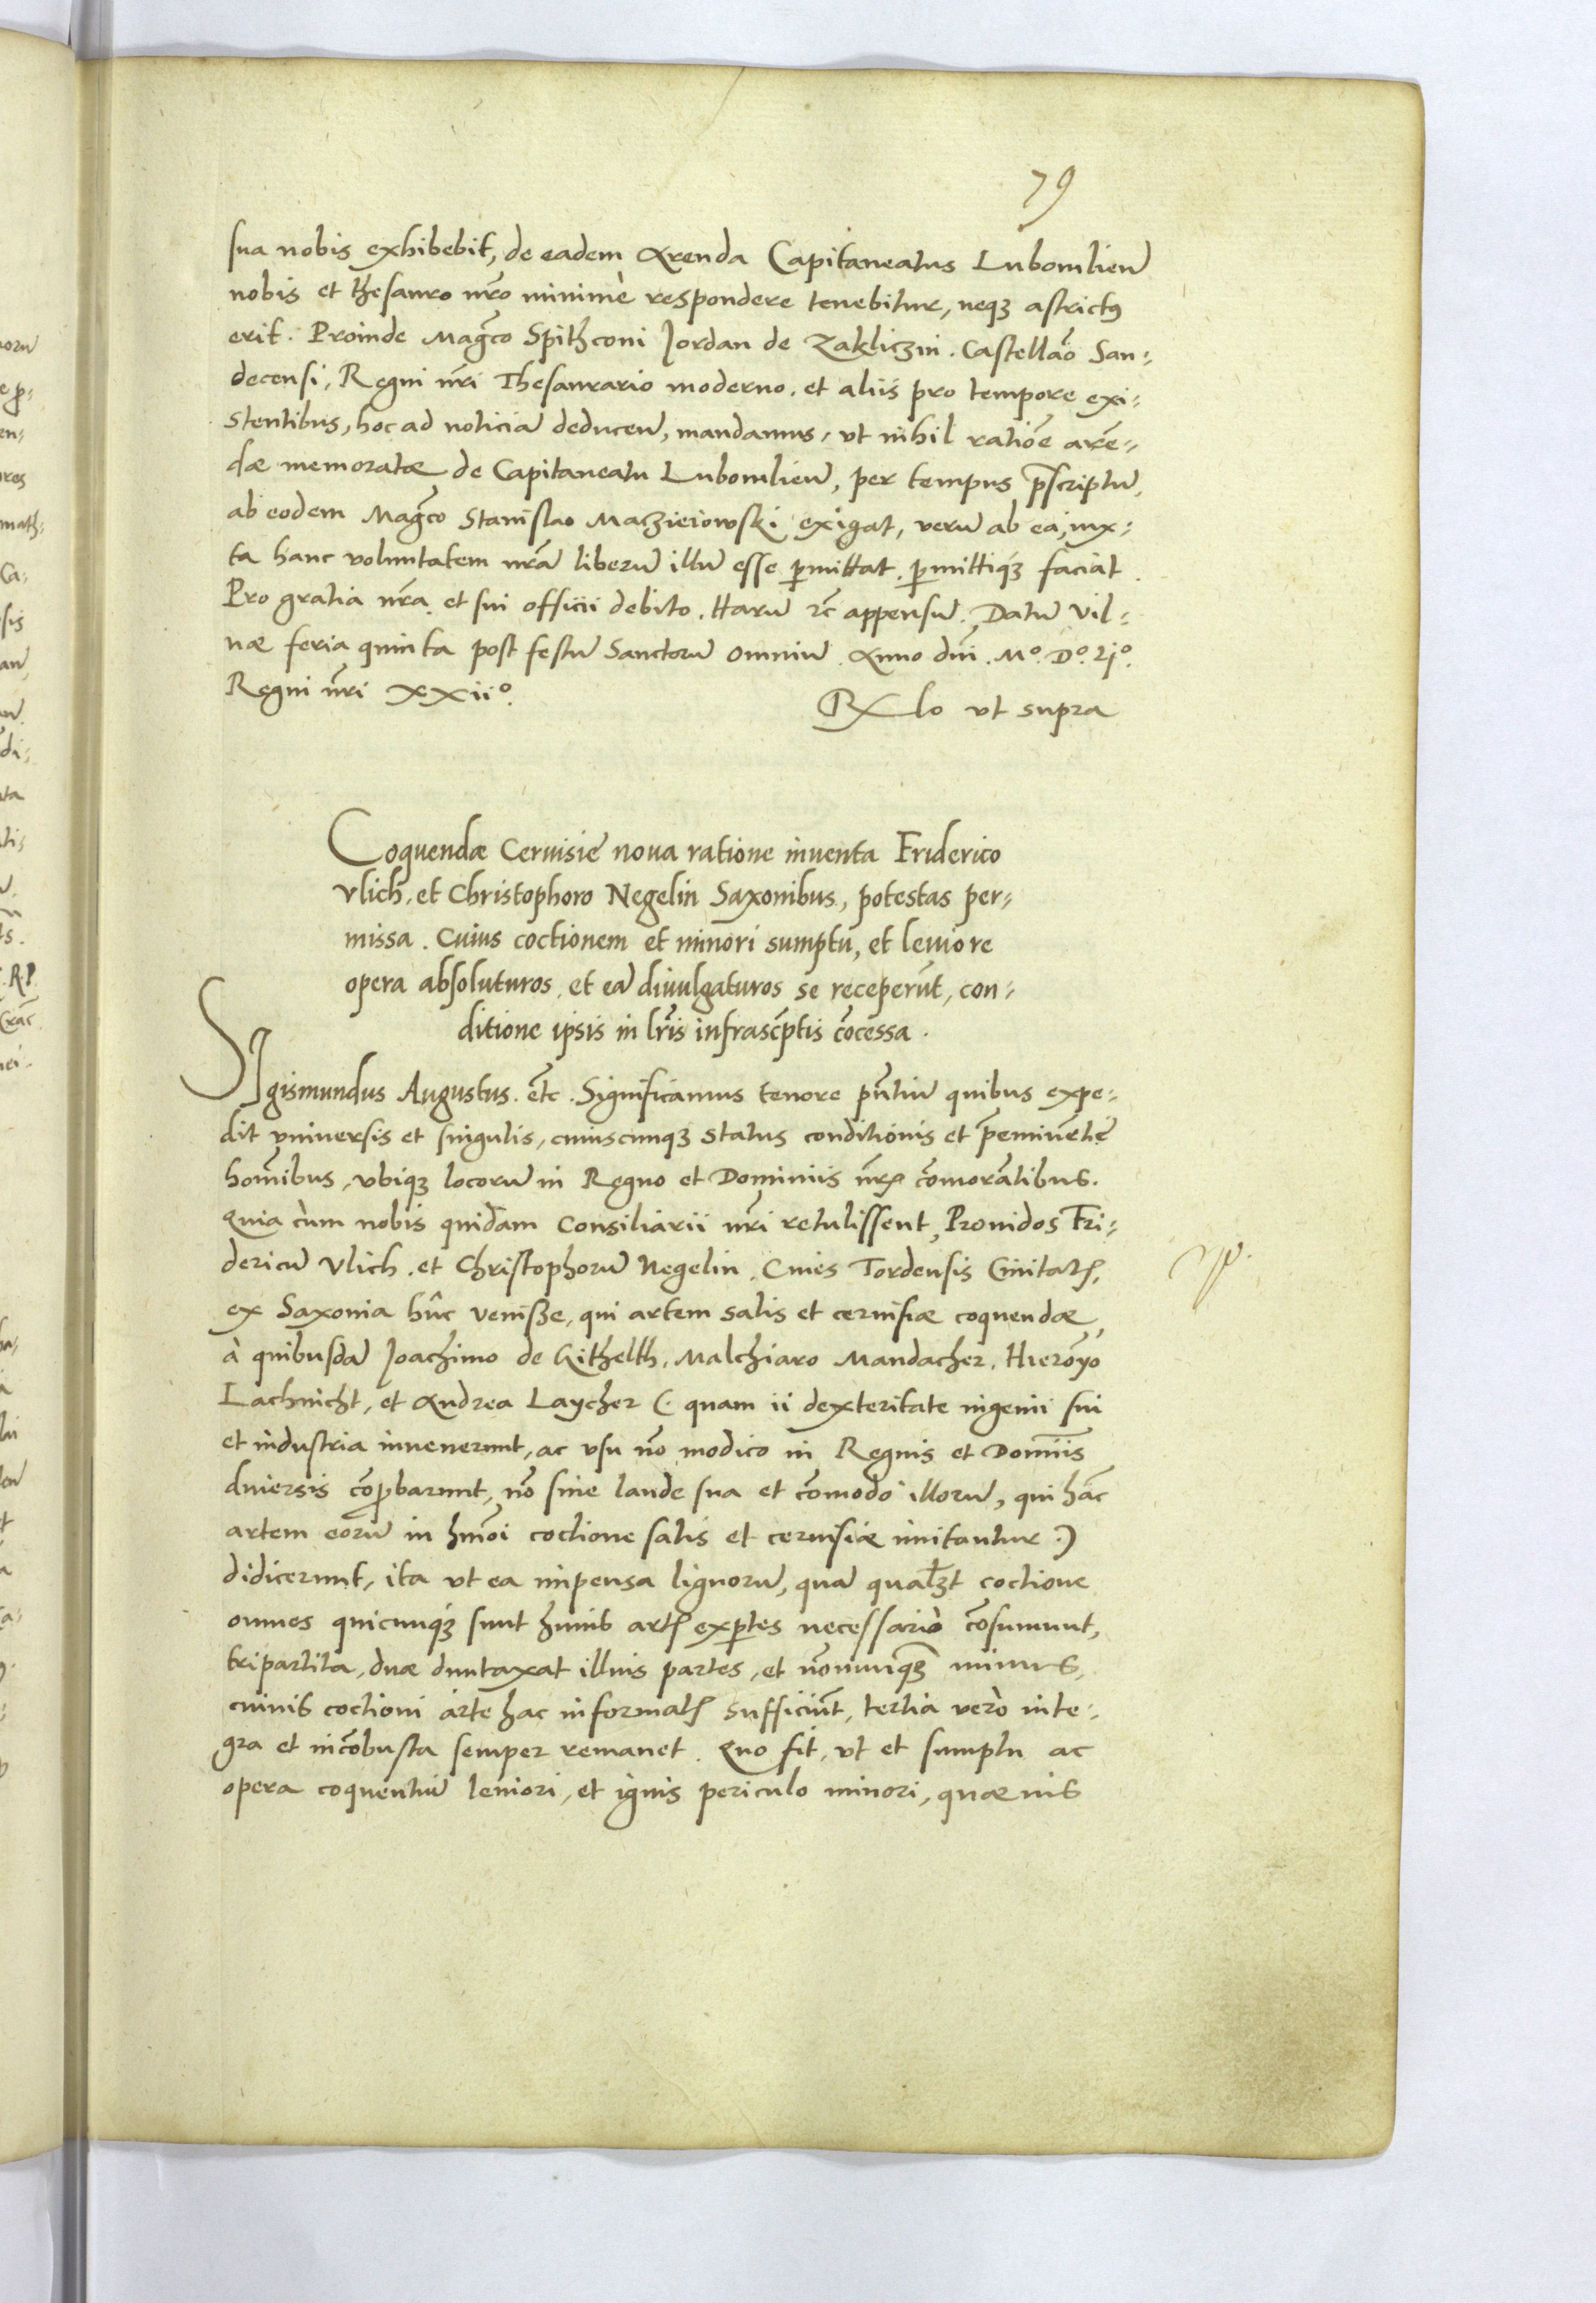 79
sua nobis exhibebit, de eadem Arenda Capitaneatus Lubomlień
nobis et thesauro nr̃o minimè respondere tenebitur, neqȝ astrictꝰ
erit. Proinde Mag̃co Spithconi Jordan de Zakliczin. Castellão San⸗
decensi, Regni nr̃i Thesaurario moderno. et aliis pro tempore exi⸗
stentibus, hoc ad noticiã deduceñ, mandamus, ut nihil ratiõe arẽ⸗
dæ memoratæ de Capitaneatu Lubomlień, per tempus p̃scriptũ,
ab eodem Mag̃co Stanislao Maczieiowski exigat, verũ ab ea, iux⸗
ta hanc voluntatem nr̃ã liberũ illũ esse ꝑmittat. ꝑmittiqȝ faciat.
Pro gratia nr̃a et sui officii debito. Harũ ꝛc̃ appensũ. Datũ Vil⸗
næ feria quinta post festũ Sanctorũ omniũ. Anno dñi. Mº. Dº. Ljº.
Regni nr̃i XXiiº.
Rlo ut supra
Coquendæ Cervisie nova ratione inventa Friderico
Vlich, et Christophoro Negelin Saxonibus, potestas per⸗
missa. Cuius coctionem et minori sumptu, et leviore
opera absoluturos, et eã divulgaturos se receperũt, con⸗
ditione ipsis in lr̃is infrascp̃tis cõcessa.
SIgismundus Augustus. etc̃. Significamus tenore pñtiũ quibus expe⸗
dit universis et singulis, cuiuscunqȝ status conditionis et p̃eminẽtie
hoĩnibus, ubiqȝ locorũ in Regno et Dominiis nr̃ꝭ cõmorãtibus.
Quia cùm nobis quidam Consiliarii nr̃i retulissent, Providos Fri⸗
dericũ Vlich. et Christophorũ Negelin. Cives Tordensis Civitatꝭ,
ex Saxonia hûc venisse, qui artem salis et cervisiæ coquendæ
à quibusdã Joachimo de Githelth, Malchiaro Mandacher, Hierõyo
Lachnicht, et Andrea Laycher (. quam ii dexteritate ingenii sui
et industria invenerunt, ac usu nõ modico in Regnis et Domĩiis
diversis cõꝓbarunt, nõ sine laude sua et cõmodo illorũ, qui hãc
artem eorũ in hmõi coctione salis et cervisiæ imitantur .)
didicerunt, ita ut ea impensa lignorũ, quã coctione
omnes quicunqȝ sunt huius artꝭ exꝑtes necessariò cõsumunt,
tripartita, duæ duntaxat illius partes, et nõnunqȝ minus,
cuius coctioni arte hac informatꝭ sufficiũt, tertia verò inte⸗
gra et incõbusta semper remanet. Quo fit, ut et sumptu ac
opera coquentiũ leniori, et ignis periculo minori, quævis